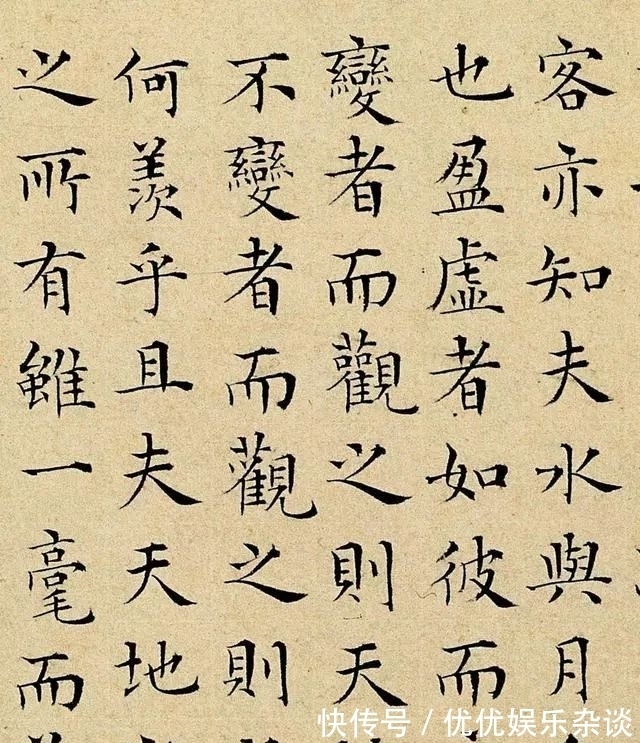 客亦知夫水與月
也盈虛者如彼而
變者而觀之則天
不變者而觀之則
何羨乎且夫天地
之所有雖一毫而
快传号/优优娱乐杂谈